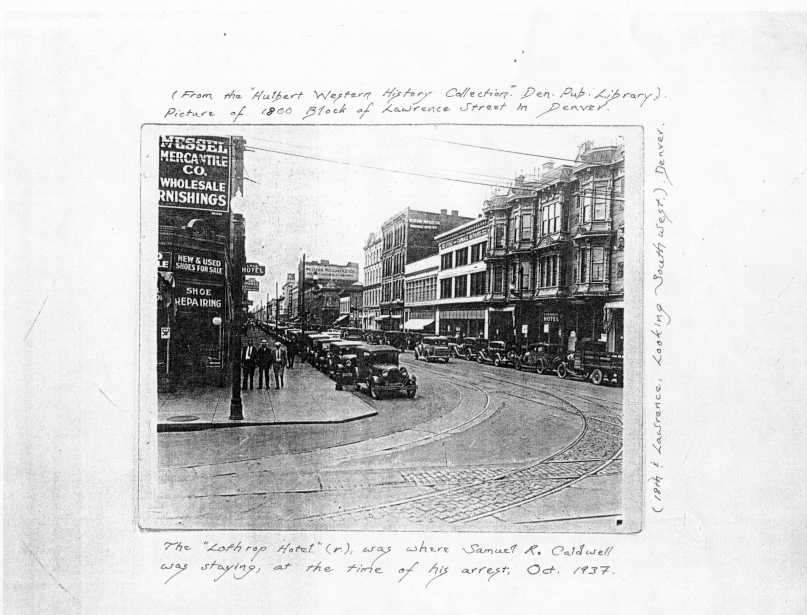 (From the "Hulbert Western History Collection". Den. Pub. Library).
Picture of 1800 Block of Lawrence Street In Denver.
MESSEL
MERCANTILE
CO.
WHOLESALE
RNISHINGS
NEW & USED
SHOES FOR SALE
SHOE
REPAIRING
HOTEL
HOTEL
(18th & Lawrence, Looking South west.) Denver.
The "Lothrop Hotel" (r), was where Samuel R. Caldwell
was staying, at the time of his arrest, Oct. 1937.